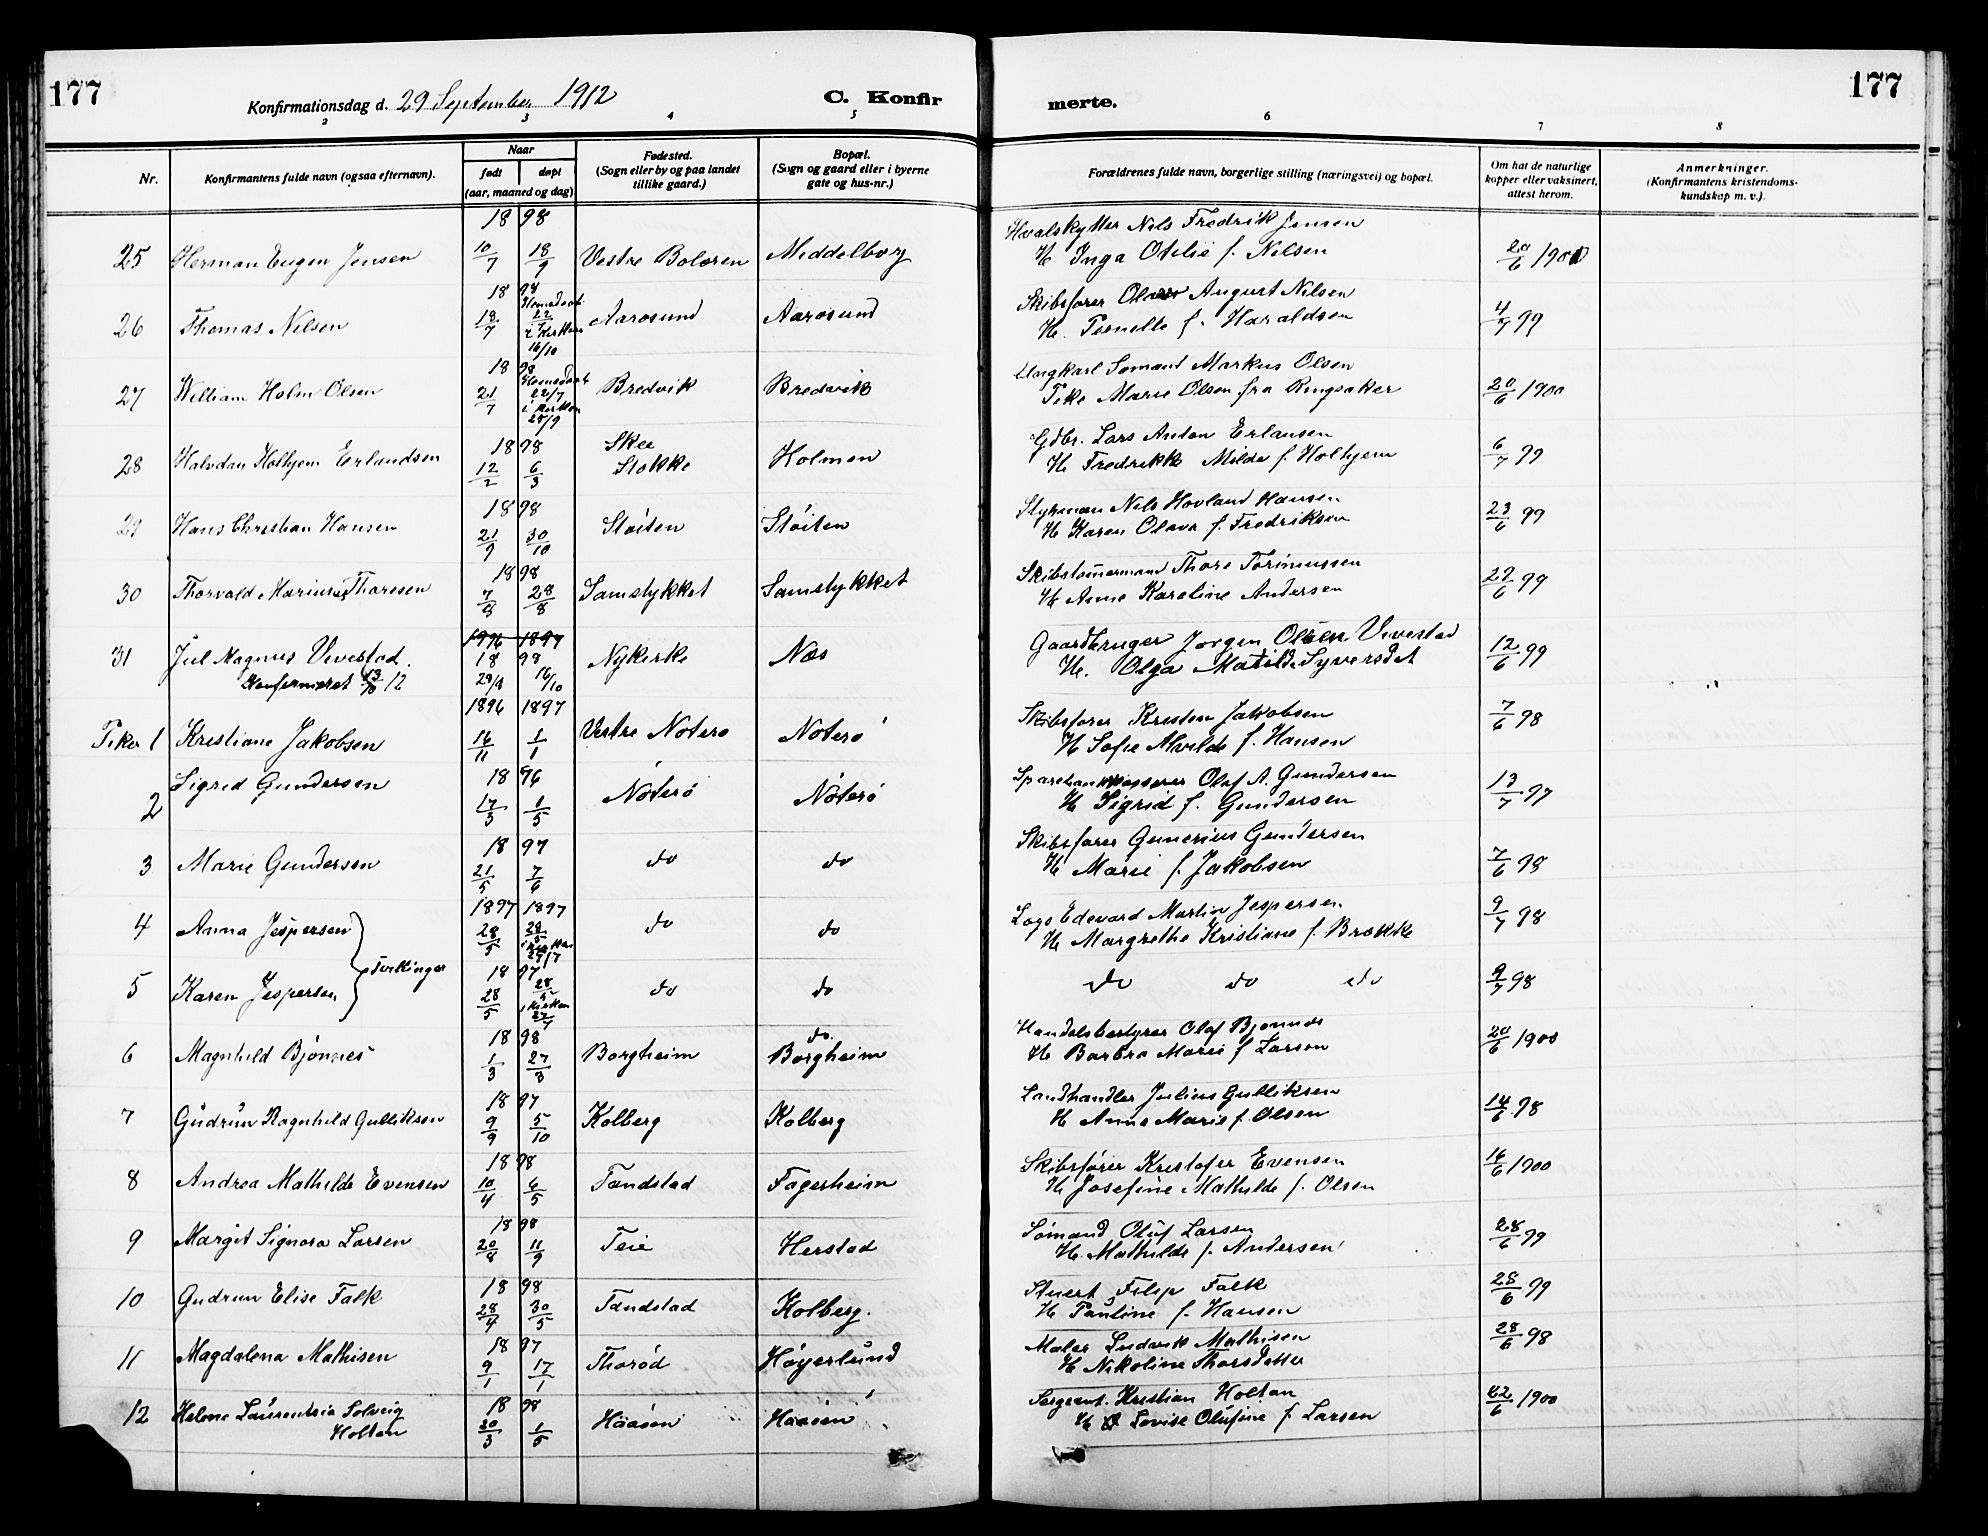 177
Konfirmationsdag d. 29 September 1912
C. Konfir
merte.
177
2 3 4 5 6 7 8
Nr.
Konfirmantens fulde navn (ogsaa efternavn).
Naar
født døpt
(aar, maaned og dag).
Fødested.
(Sogn eller by og paa landet
tillike gaard.)
Bopæl.
(Sogn og gaard eller i byerne
gate og hus-nr.)
Forældrenes fulde navn, borgerlige stilling (næringsvei) og bopæl.
Om hat de naturlige
kopper eller vaksinert,
attest herom.
Anmerkninger.
(Konfirmantens kristendoms-
kundskap m. v.).
18 98 Hvalskytter Nils Fredrik Jensen
25 Herman Eugen Jensen 10/7 18/9 Vestre Bolæren Middelborg H. Inga Otilie f. Nilsen 20/6 1900
18 98 Skibsfører August Nilsen
26 Thomas Nilsen 18/7 Hjemedøbt 22/7 i Kirken 16/10 Aarøsund Aarøsund H. Pernelle f. Haraldsen 4/7 99
18 98 Ungkarl Sømand Markus Olsen
27 William Holm Olsen 21/7 Hjemedøbt 22/7 i Kirken 25/9 Bredvik Bredvik Pike Marie Olsen fra Ringsaker 20/6 1900
18 98 Skee Gdbr. Lars Anton Erlansen
28 Halvdan Holhjem Erlandsen 12/2 6/3 Stokke Holmen H. Fredrikke Milda f. Holhjem 6/7 99
18 98 Styrman Nils Hovland Hansen
29 Hans Christian Hansen 21/9 30/10 Støiten Støiten H. Karen Olava f. Fredriksen 23/6 99
18 98 Skibstømermand Thore Torimussen
30 Thorvald Marius Thoresen 7/8 28/8 Samstykket Samstykket H. Anne Karoline Andersen 29/6 99
1896 1897 Gaardbruger Jørgen Olsen Vivestad
31 Jul Magnus Vivestad. 18 98 Nykirke Næs H. Olga Matilde Syversdat 12/6 99
Konfirmeret 13/10 12 29/8 16/10
1896 1897 Skibsfører Kristen Jakobsen
Piker 1 Kristiane Jakobsen 16/11 1/1 Vestre Nøterø Nøterø H. Sofie Alvilde f. Hansen 7/6 98
Sigrid Gundersen 18 96 Sparebankkasserer Olaf A. Gundersen
2 17/3 1/5 Nøterø Nøterø H. Sigrid f. Gundersen 13/7 97
18 97 Skibsfører Gunerius Gundersen
3 Marie Gundersen 21/5 7/6 do do H. Marie f. Jakobsen 7/6 98
1897 1897 Lods Edevard Martin Jespersen
4 Anna Jespersen 28/5 28/5 i Kirken 27/7 do do H. Margrethe Kristiane f. Brække 9/7 98
Tvillinger
18 97
5 Karen Jespersen 28/5 28/5 i Kirken 27/7 do do do do do 9/7 98
18 98 do. Handelsbestyrer Olaf Bjønnes
6 Magnhild Bjønnes 1/3 27/3 Borgheim Borgheim H. Barbra Marie f Larsen 20/6 1900
18 97 Landhandler Julius Gulliksen
7 Gudrun Ragnhild Gulliksen 9/9 5/10 Kolberg Kolberg H. Anna Marie f. Olsen 14/6 98
18 98 Skibsfører Kristofer Evensen
8 Andrea Mathilde Evensen 10/4 6/5 Tandstad Fagerheim H. Josefine Mathilde f. Olsen 16/6 1900
18 98 Sømand Oluf Larsen
9 Margit Signora Larsen 20/8 11/9 Teie Herstad H. Mathilde f. Andersen 28/6 99
18 98 Stuert Filip Falk
10 Gudrun Elise Falk 28/4 30/5 Tandstad Kolberg. H. Pauline f. Hansen 28/6 99
18 97 Maler Ludvik Mathisen
11 Magdalena Mathisen 9/1 17/1 Thorød Høyerlund H. Nikoline Thorsdatter 28/6 98
18 98 Sergeant. Kristian Holtan
12 Helene Laurentzia Solveig Holtan 20/3 1/5 Haaøen Haaøen H. Lovise Olufine f. Larsen 22/6 1900